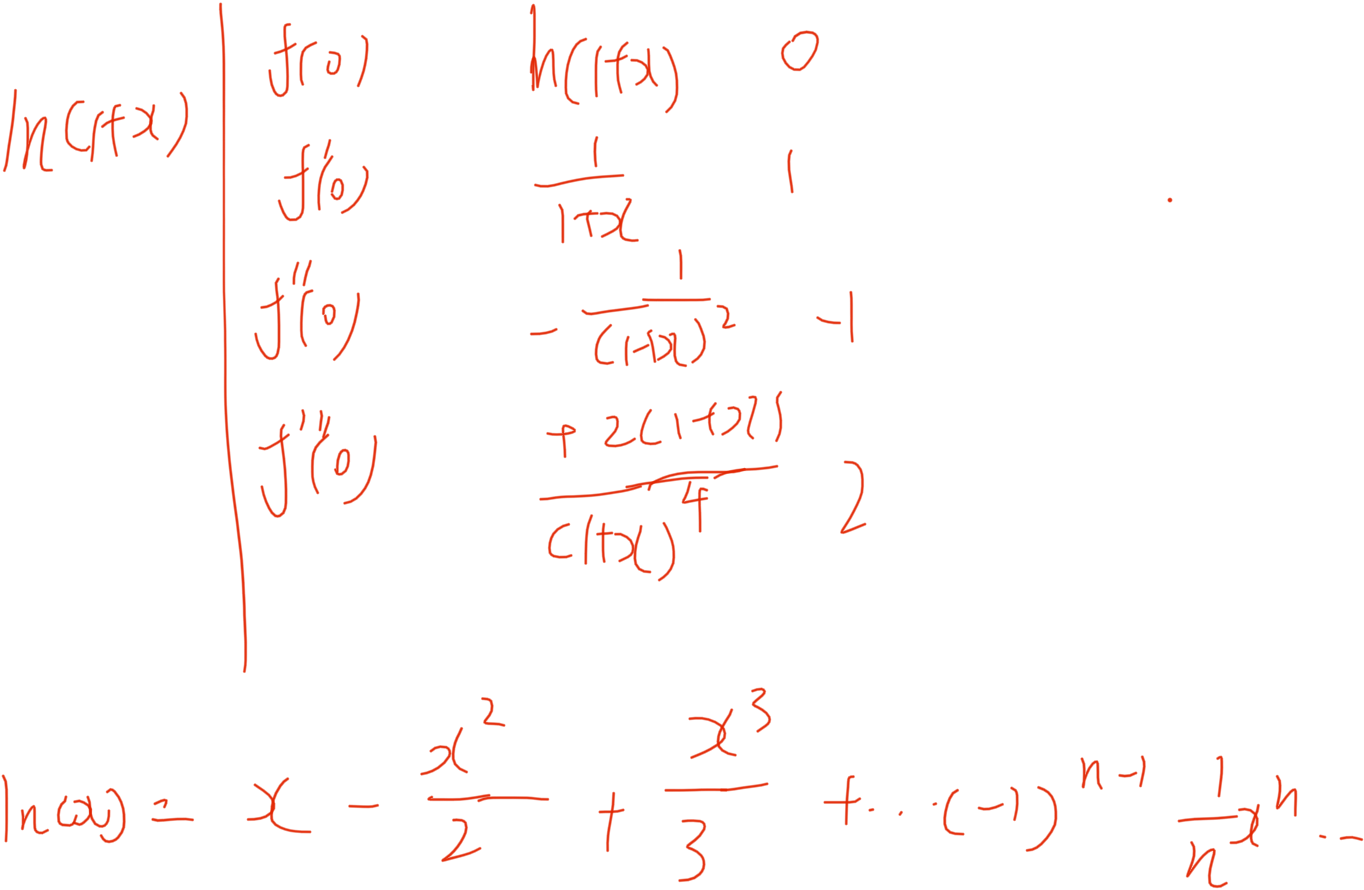 ln(1+x)
f(0) ln(1+x) 0
f'(0) 1/(1+x) 1
f''(0) - 1/(1+x)^2 -1
f'''(0) +2(1+x)/(1+x)^4 2
ln(x) = x - x^2/2 + x^3/3 + ... (-1)^(n-1) 1/n x^n ...